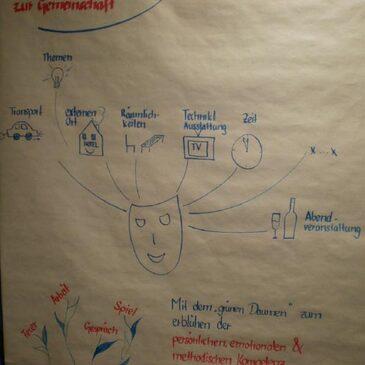 zur Gemeinschaft
Themen
Transport
externen
Ort
HOTEL
Räumlich-
keiten
Technik/
Ausstattung
TV
Zeit
x....x
Abend-
veranstaltung
Feier
Arbeit
Gespräch
Spiel
Mit dem „grünen Daumen" zum
erblühen der
persönlichen, emotionalen &
methodischen Kompetenz